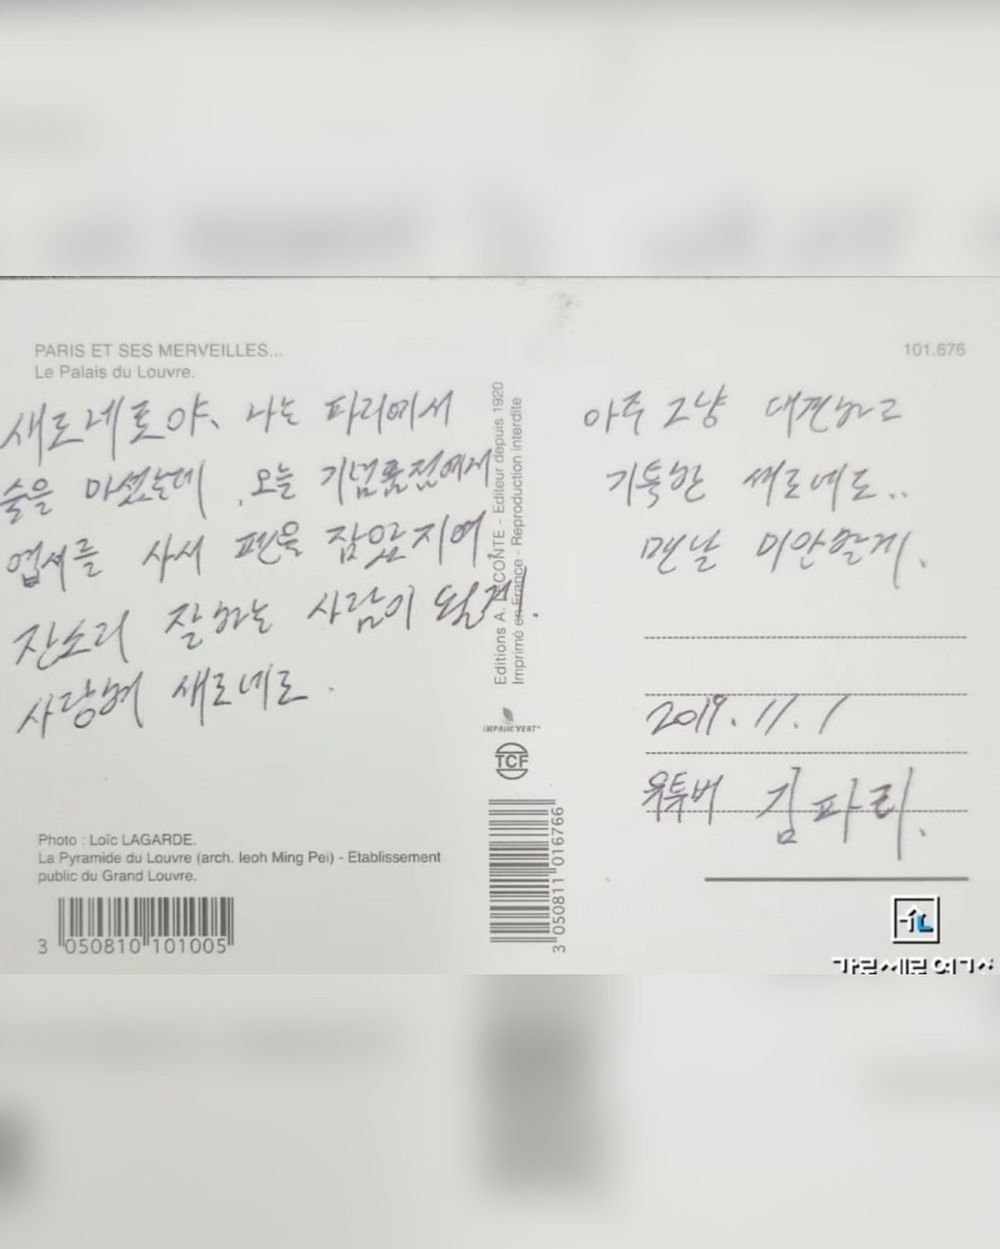 PARIS ET SES MERVEILLES...
Le Palais du Louvre.
101.676
새로네로야, 나는 파리에서
술을 마셨는데, 오늘 기념품점에서
엽서를 사서 펜을 잡았지여
잔소리 잘하는 사람이 될게.
사랑해 새로네로.
Editions A. LECONTE - Editeur depuis 1920
Imprimé en France - Reproduction interdite
아주 그냥 대견하고
기특한 새로네로..
맨날 미안할게.
2019.11.1
유투버 김파리.
IMPRIM'VERT®
TCF
3 050811 016766
Photo : Loïc LAGARDE.
La Pyramide du Louvre (arch. Ieoh Ming Pei) - Etablissement
public du Grand Louvre.
3 050810 101005